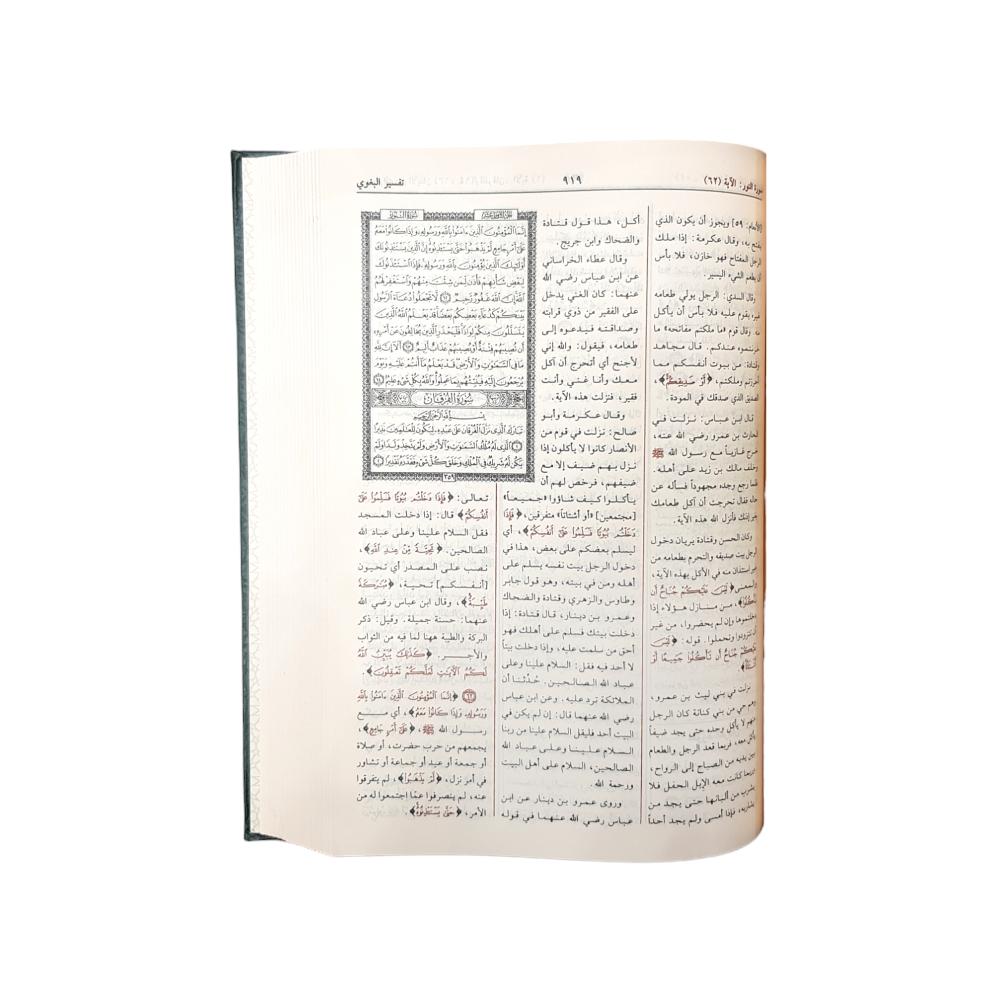 سورة النور: الآية (٦٢)
٩١٩
تفسير البغوي
[الأنعام: ٥٩] ويجوز أن يكون الذي
يفتح به، وقال عكرمة: إذا ملك
الرجل المفتاح فهو خازن، فلا بأس
أن يطعم الشيء اليسير.
وقال السدي: الرجل يولي طعامه
غيره يقوم عليه فلا بأس أن يأكل
منه. وقال قوم «ما ملكتم مفاتحه» ما
خزنتموه عندكم. قال مجاهد
وقتادة: من بيوت أنفسكم مما
أحرزتم وملكتم، ﴿أَوْ صَدِيقِكُمْ﴾،
الصديق الذي صدقك في المودة.
قال ابن عباس: نزلت في
الحارث بن عمرو رضي الله عنه،
خرج غازياً مع رسول الله ﷺ
وخلف مالك بن زيد على أهله.
فلما رجع وجده مجهوداً فسأله عن
حاله فقال تحرجت أن آكل طعامك
بغير إذنك فأنزل الله هذه الآية.
وكان الحسن وقتادة يريان دخول
الرجل بيت صديقه والتحرم بطعامه من
غير استئذان منه في الأكل بهذه الآية.
والمعنى ﴿لَيْسَ عَلَيْكُمْ جُنَاحٌ أَن
تَأْكُلُوا﴾، من منازل هؤلاء إذا
دخلتموها وإن لم يحضروا، من غير
أن تتزودوا وتحملوا. قوله: ﴿لَيْسَ
عَلَيْكُمْ جُنَاحٌ أَن تَأْكُلُوا جَمِيعًا أَوْ
أَشْتَاتًا﴾
نزلت في بني ليث بن عمرو،
وهم حي من بني كنانة كان الرجل
منهم لا يأكل وحده حتى يجد ضيفاً
يأكل معه، فربما قعد الرجل والطعام
بين يديه من الصباح إلى الرواح،
وربما كانت معه الإبل الحفل فلا
يشرب من ألبانها حتى يجد من
يشاربه، فإذا أمسى ولم يجد أحداً
أكل، هذا قول قتادة
والضحاك وابن جريج.
وقال عطاء الخراساني
عن ابن عباس رضي الله
عنهما: كان الغني يدخل
على الفقير من ذوي قرابته
وصداقته فيدعوه إلى
طعامه، فيقول: والله إني
لأجنح أي أتحرج أن آكل
معك وأنا غني وأنت
فقير، فنزلت هذه الآية.
وقال عكرمة وأبو
صالح: نزلت في قوم من
الأنصار كانوا لا يأكلون إذا
نزل بهم ضيف إلا مع
ضيفهم، فرخص لهم أن
يأكلوا كيف شاؤوا «جميعاً»
[مجتمعين] «أو أشتاتاً» متفرقين، ﴿فَإِذَا
دَخَلْتُم بُيُوتًا فَسَلِّمُوا عَلَىٰ أَنفُسِكُمْ﴾، أي
ليسلم بعضكم على بعض، هذا في
دخول الرجل بيت نفسه يسلم على
أهله ومن في بيته، وهو قول جابر
وطاوس والزهري وقتادة والضحاك
وعمرو بن دينار، قال قتادة: إذا
دخلت بيتك فسلم على أهلك فهو
أحق من سلمت عليه، وإذا دخلت بيتاً
لا أحد فيه فقل: السلام علينا وعلى
عباد الله الصالحين. حُدِّثنا أن
الملائكة ترد عليه. وعن ابن عباس
رضي الله عنهما قال: إن لم يكن في
البيت أحد فليقل السلام علينا من ربنا
السلام علينا وعلى عباد الله
الصالحين، السلام على أهل البيت
ورحمة الله.
وروى عمرو بن دينار عن ابن
عباس رضي الله عنهما في قوله
سُورَةُ النُّورِ
الجزء الثامن عشر
إِنَّمَا الْمُؤْمِنُونَ الَّذِينَ ءَامَنُوا بِاللَّهِ وَرَسُولِهِ وَإِذَا كَانُوا مَعَهُ
عَلَىٰ أَمْرٍ جَامِعٍ لَّمْ يَذْهَبُوا حَتَّىٰ يَسْتَـْٔذِنُوهُ إِنَّ الَّذِينَ يَسْتَـْٔذِنُونَكَ
أُولَٰئِكَ الَّذِينَ يُؤْمِنُونَ بِاللَّهِ وَرَسُولِهِ فَإِذَا اسْتَـْٔذَنُوكَ
لِبَعْضِ شَأْنِهِمْ فَأْذَن لِّمَن شِئْتَ مِنْهُمْ وَاسْتَغْفِرْ لَهُمُ
اللَّهَ إِنَّ اللَّهَ غَفُورٌ رَّحِيمٌ ٦٢ لَّا تَجْعَلُوا دُعَاءَ الرَّسُولِ
بَيْنَكُمْ كَدُعَاءِ بَعْضِكُم بَعْضًا قَدْ يَعْلَمُ اللَّهُ الَّذِينَ
يَتَسَلَّلُونَ مِنكُمْ لِوَاذًا فَلْيَحْذَرِ الَّذِينَ يُخَالِفُونَ عَنْ أَمْرِهِ
أَن تُصِيبَهُمْ فِتْنَةٌ أَوْ يُصِيبَهُمْ عَذَابٌ أَلِيمٌ ٦٣ أَلَا إِنَّ لِلَّهِ
مَا فِي السَّمَٰوَٰتِ وَالْأَرْضِ قَدْ يَعْلَمُ مَا أَنتُمْ عَلَيْهِ وَيَوْمَ
يُرْجَعُونَ إِلَيْهِ فَيُنَبِّئُهُم بِمَا عَمِلُوا وَاللَّهُ بِكُلِّ شَيْءٍ عَلِيمٌ ٦٤
سُورَةُ الْفُرْقَانِ
بِسْمِ اللَّهِ الرَّحْمَٰنِ الرَّحِيمِ
تَبَارَكَ الَّذِي نَزَّلَ الْفُرْقَانَ عَلَىٰ عَبْدِهِ لِيَكُونَ لِلْعَالَمِينَ نَذِيرًا
١ الَّذِي لَهُ مُلْكُ السَّمَٰوَٰتِ وَالْأَرْضِ وَلَمْ يَتَّخِذْ وَلَدًا وَلَمْ
يَكُن لَّهُ شَرِيكٌ فِي الْمُلْكِ وَخَلَقَ كُلَّ شَيْءٍ فَقَدَّرَهُ تَقْدِيرًا ٢
٣٥٩
تعالى: ﴿فَإِذَا دَخَلْتُم بُيُوتًا فَسَلِّمُوا عَلَىٰ
أَنفُسِكُمْ﴾ قال: إذا دخلت المسجد
فقل السلام علينا وعلى عباد الله
الصالحين. ﴿تَحِيَّةً مِّنْ عِندِ اللَّهِ﴾،
نصب على المصدر أي تحيون
[أنفسكم] تحية، ﴿مُبَٰرَكَةً
طَيِّبَةً﴾، وقال ابن عباس رضي الله
عنهما: حسنة جميلة. وقيل: ذكر
البركة والطيبة ههنا لما فيه من الثواب
والأجر. ﴿كَذَٰلِكَ يُبَيِّنُ اللَّهُ
لَكُمُ الْآيَٰتِ لَعَلَّكُمْ تَعْقِلُونَ﴾.
٦٢ ﴿إِنَّمَا الْمُؤْمِنُونَ الَّذِينَ ءَامَنُوا بِاللَّهِ
وَرَسُولِهِ وَإِذَا كَانُوا مَعَهُ﴾، أي مع
رسول الله ﷺ، ﴿عَلَىٰ أَمْرٍ جَامِعٍ﴾،
يجمعهم من حرب حضرت، أو صلاة
أو جمعة أو عيد أو جماعة أو تشاور
في أمر نزل، ﴿لَّمْ يَذْهَبُوا﴾، لم يتفرقوا
عنه، لم ينصرفوا عمّا اجتمعوا له من
الأمر، ﴿حَتَّىٰ يَسْتَـْٔذِنُوهُ﴾،